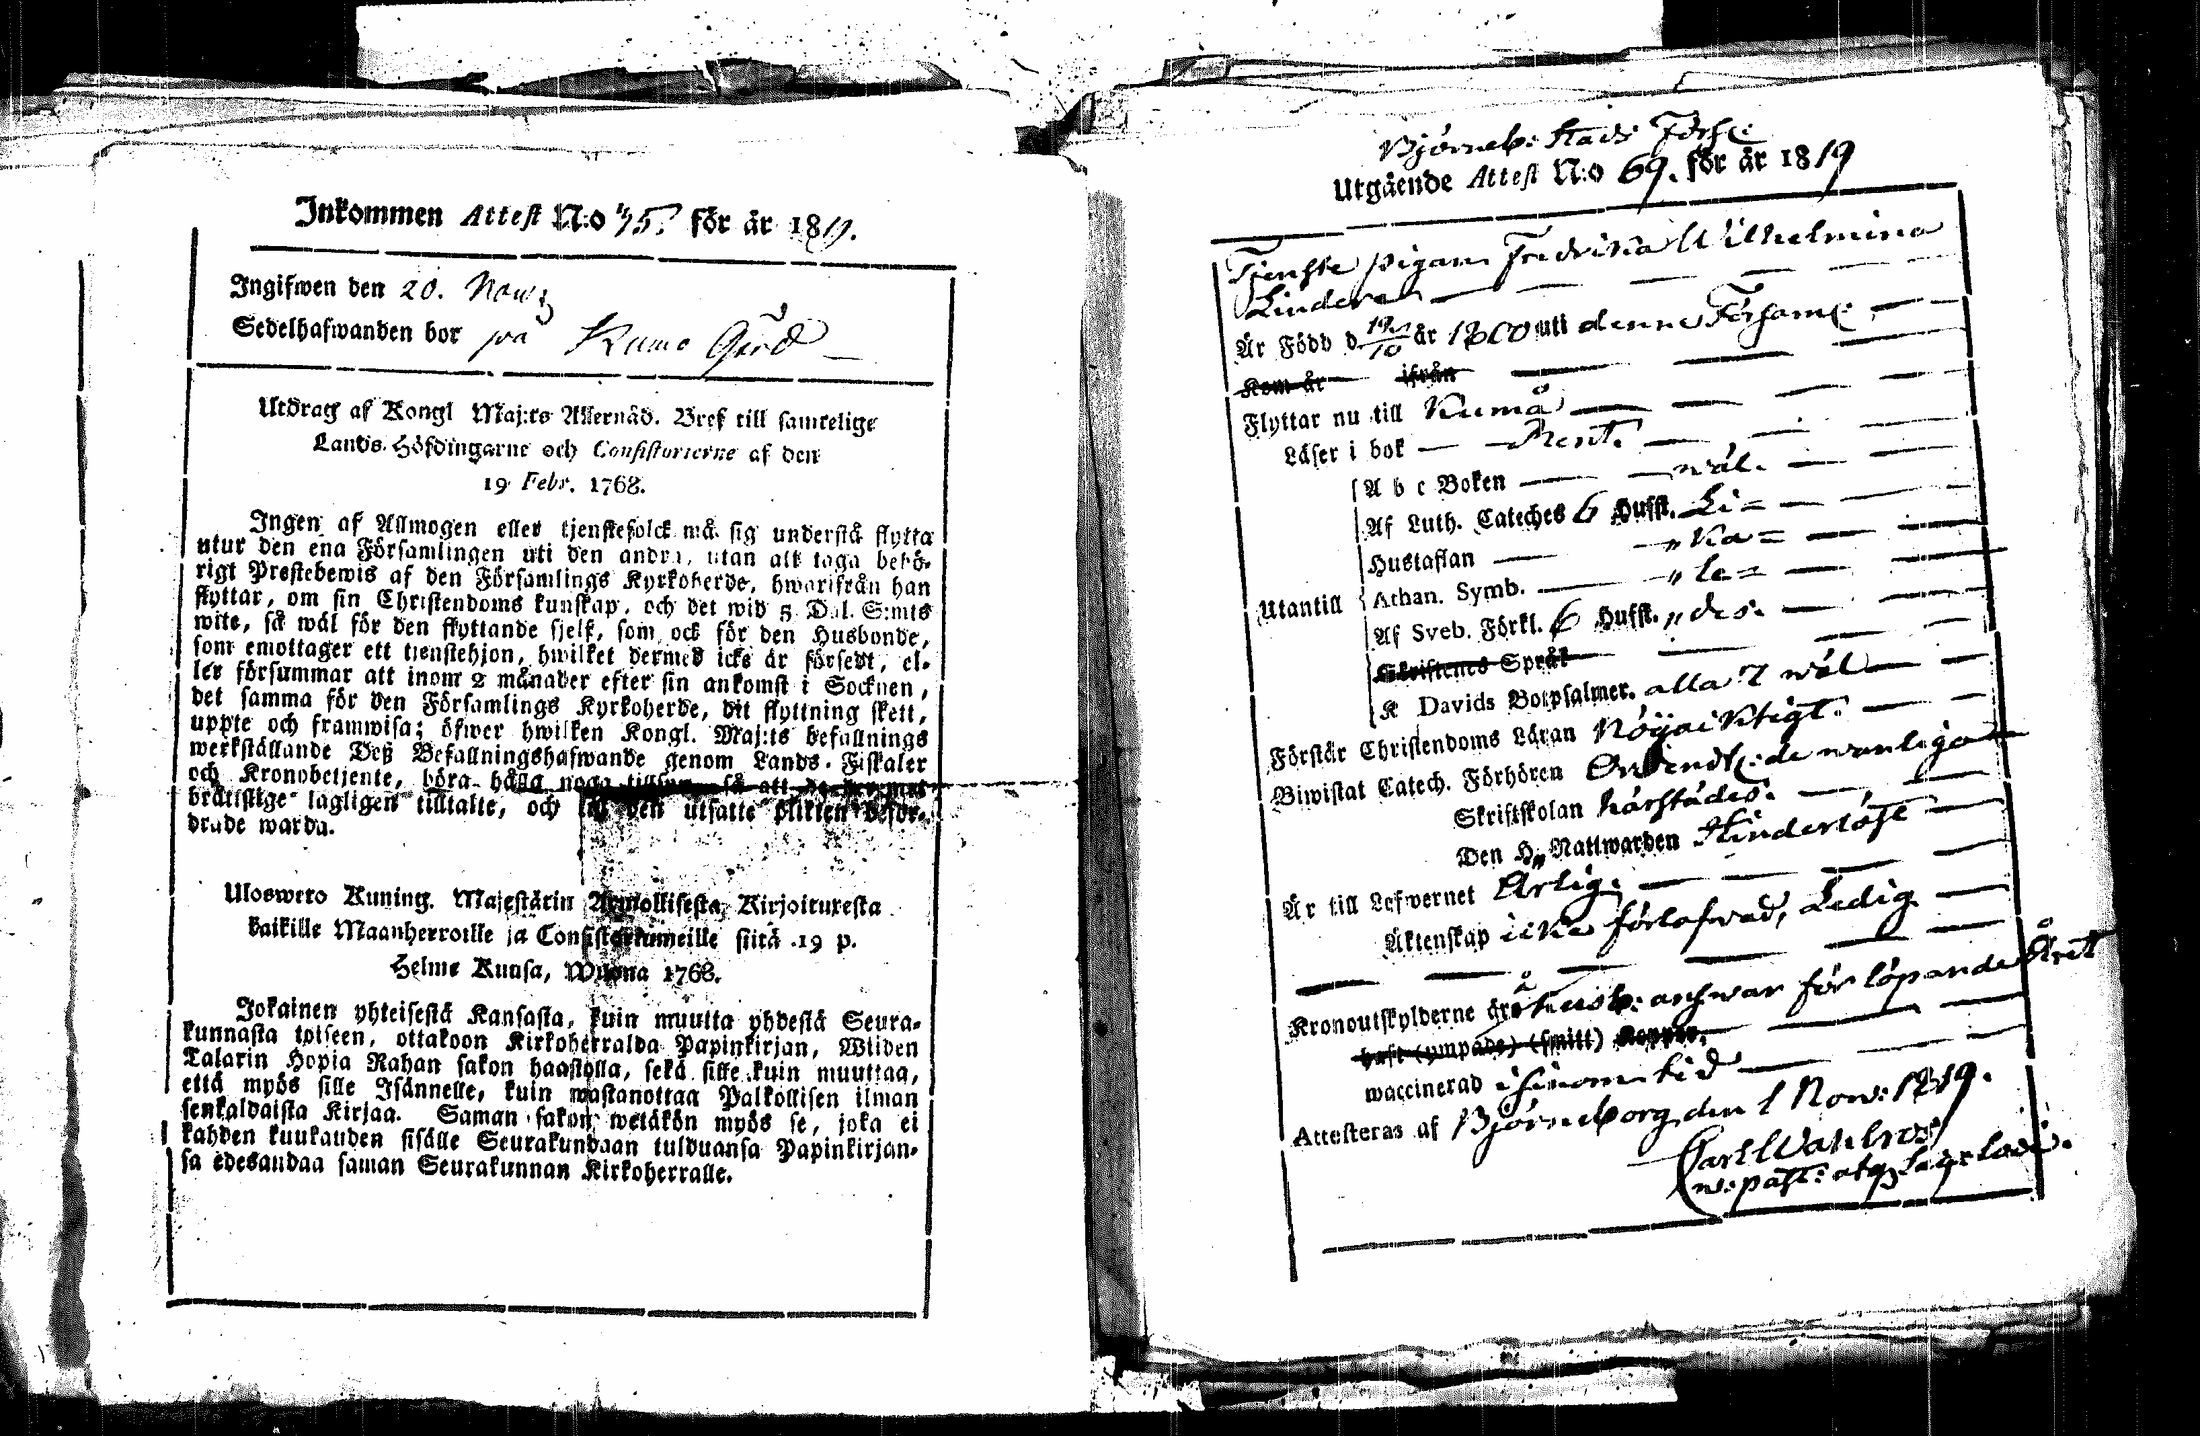 Inkommen Attest N:o 75. för år 1819.
Ingifwen den 20. Nov:
Sedelhafwanden bor på Kumo Gård
Utdrag af Kongl Maj:ts Allernåd. Bref till samtelige
Lands-Höfdingarne och Consistorierne af den
19 Febr. 1768.
Ingen af Allmogen eller tjenstefolck må sig understå flytta
utur den ena Församlingen uti den andra, utan att taga behö-
rigt Prestebewis af den Församlings Kyrkoherde, hwarifrån han
flyttar, om sin Christendoms kunskap, och det wid 5 Dal. S:mts
wite, så wäl för den flyttande sjelf, som ock för den Husbonde,
som emottager ett tjenstehjon, hwilket dermed icke är försedt, el-
ler försummar att inom 2 månader efter sin ankomst i Socknen,
det samma för den Församlings Kyrkoherde, dit flyttning skett,
uppte och framwisa; öfwer hwilken Kongl. Maj:ts befallnings
werkställande Deß Befallningshafwande genom Lands-Fiskaler
och Kronobetjente, böra hålla noga tillsyn, så att de
brottslige lagligen tilltalte, och till den utsatte plikten beför-
drade warda.
Uloswero Kuning. Majestärin Armollisesta Kirjoituxesta
kaikille Maanherroille ja Consistoriumeille siitä 19 p.
Helme Kuusa, Wuonna 1768.
Jokainen yhteisestä Kansasta, kuin muutta yhdestä Seura-
kunnasta toiseen, ottakoon Kirkoherralda Papinkirjan, Wiiden
Talarin Hopia Rahan sakon haastolla, sekä sille kuin muuttaa,
että myös sille Isännelle, kuin wastanottaa Palkollisen ilman
senkaldaista Kirjaa. Saman sakon wetäkön myös se, joka ei
kahden kuukauden sisälle Seurakundaan tulduansa Papinkirjan-
sa edesandaa saman Seurakunnan Kirkoherralle.
Björneb: Stads Förs:
Utgående Attest N:o 69. för år 1819
Tjenste pigan Fredrika Wilhelmina
Är Född d 19/10 år 1800 uti denne Församl:
Kom år ifrån
Flyttar nu till Kumå
Läser i bok Rent.
A b c Boken wäl.
Af Luth. Cateches 6 Hufst. Li=
Hustaflan " ka=
Utantill Athan. Symb. " le=
Af Sveb. Förkl. 6 Hufst. " des.
Skriftenes Språk
K Davids Botpsalmer. alla 7 wäl
Förstår Christendoms Läran Nöijaktigt.
Biwistat Catech. Förhören Ordendtl: de wanliga
Skriftskolan härstädes.
Den H. Nattwarden Hinderlöst
Är till Lefwernet Ärlig.
Äktenskap icke förlofwad, Ledig
Kronoutskylderne äro å Husb: answar för löpande Året
haft (ympade) (smitt) Koppor.
waccinerad i sinom tid
Attesteras af Björneborg den 1 Nov: 1819.